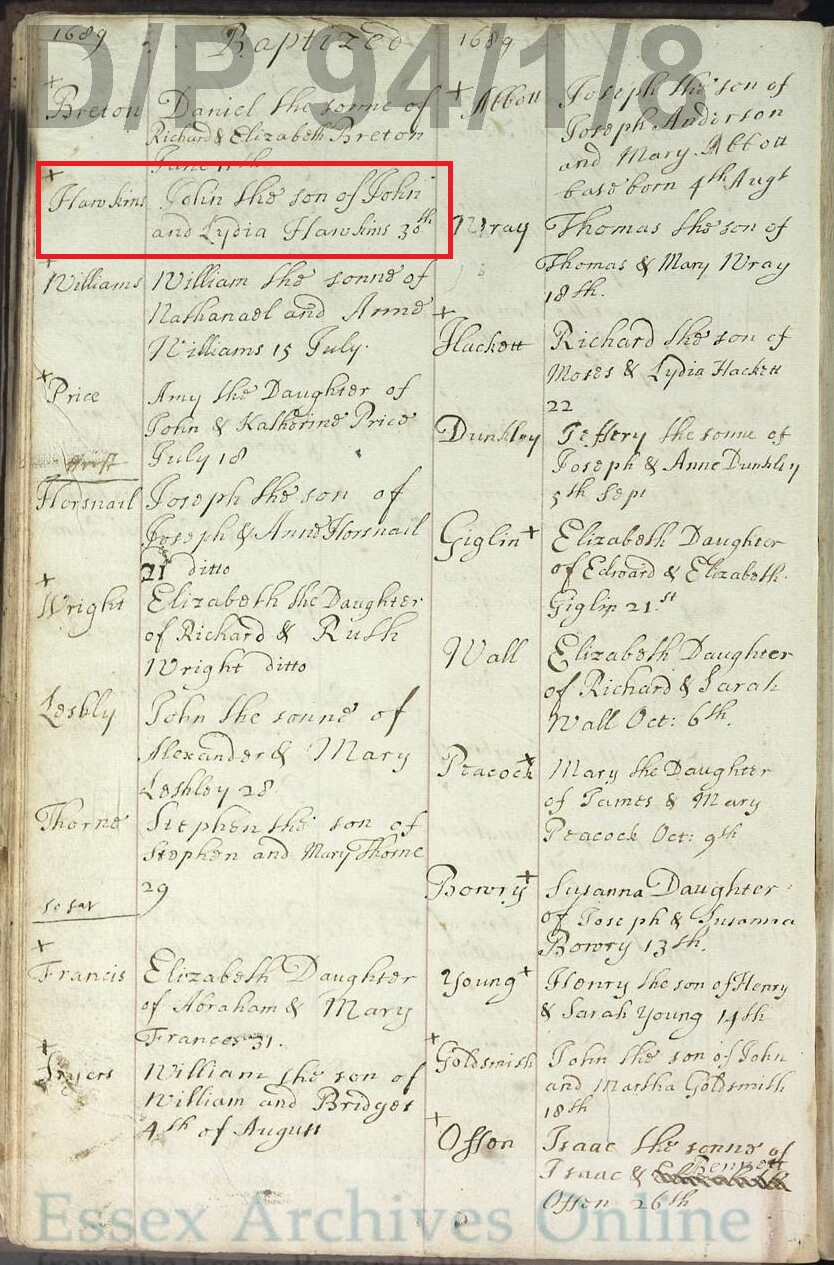 D/P 94/1/8
1689 Baptized 1689
Breton Daniel the sonne of
Richard & Elizabeth Breton
June 11th
Hawkins John the son of John
and Lydia Hawkins 30th
Williams William the sonne of
Nathanael and Anne
Williams 15 July.
Price Amy the Daughter of
John & Katherine Price
July 18
Horsnail Joseph the son of
Joseph & Anne Horsnail
21 ditto
Wright Elizabeth the Daughter
of Richard & Ruth
Wright ditto
Leshly John the sonne of
Alexander & Mary
Leshley 28
Thorne Stephen the son of
Stephen and Mary Thorne
29
Francis Elizabeth Daughter
of Abraham & Mary
Frances 31.
Fryers William the son of
William and Bridget
4th of August
Abbott Joseph the son of
Joseph Anderson
and Mary Abbott
base born 4th Augt
Wray Thomas the son of
Thomas & Mary Wray
18th.
Hackett Richard the son of
Moses & Lydia Hackett
22
Dunkley Jeffery the sonne of
Joseph & Anne Dunkley
5th Sept
Giglin Elizabeth Daughter
of Edward & Elizabeth
Giglin 21.st
Wall Elizabeth Daughter
of Richard & Sarah
Wall Oct: 6th.
Peacock Mary the Daughter
of James & Mary
Peacock Oct: 9th
Bowry Susanna Daughter
of Joseph & Susanna
Bowry 13th.
Young Henry the son of Henry
& Sarah Young 14th
Goldsmith John the son of John
and Martha Goldsmith
18th
Offon Isaac the sonne of
Bennett
Isaac &
Offen 26th
Essex Archives Online
from the Essex Record Office